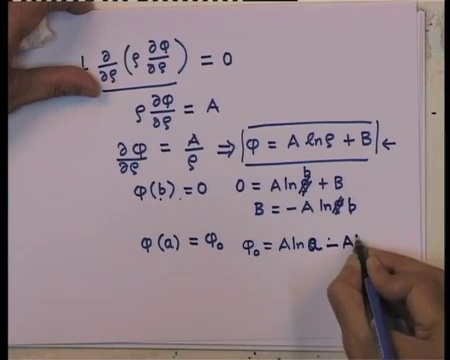 1 ∂/∂ρ (ρ ∂φ/∂ρ) = 0
ρ ∂φ/∂ρ = A
∂φ/∂ρ = A/ρ ⇒ φ = A ln ρ + B ←
φ(b) = 0 0 = A ln b + B
B = − A ln b
φ(a) = φ₀ φ₀ = A ln a − A